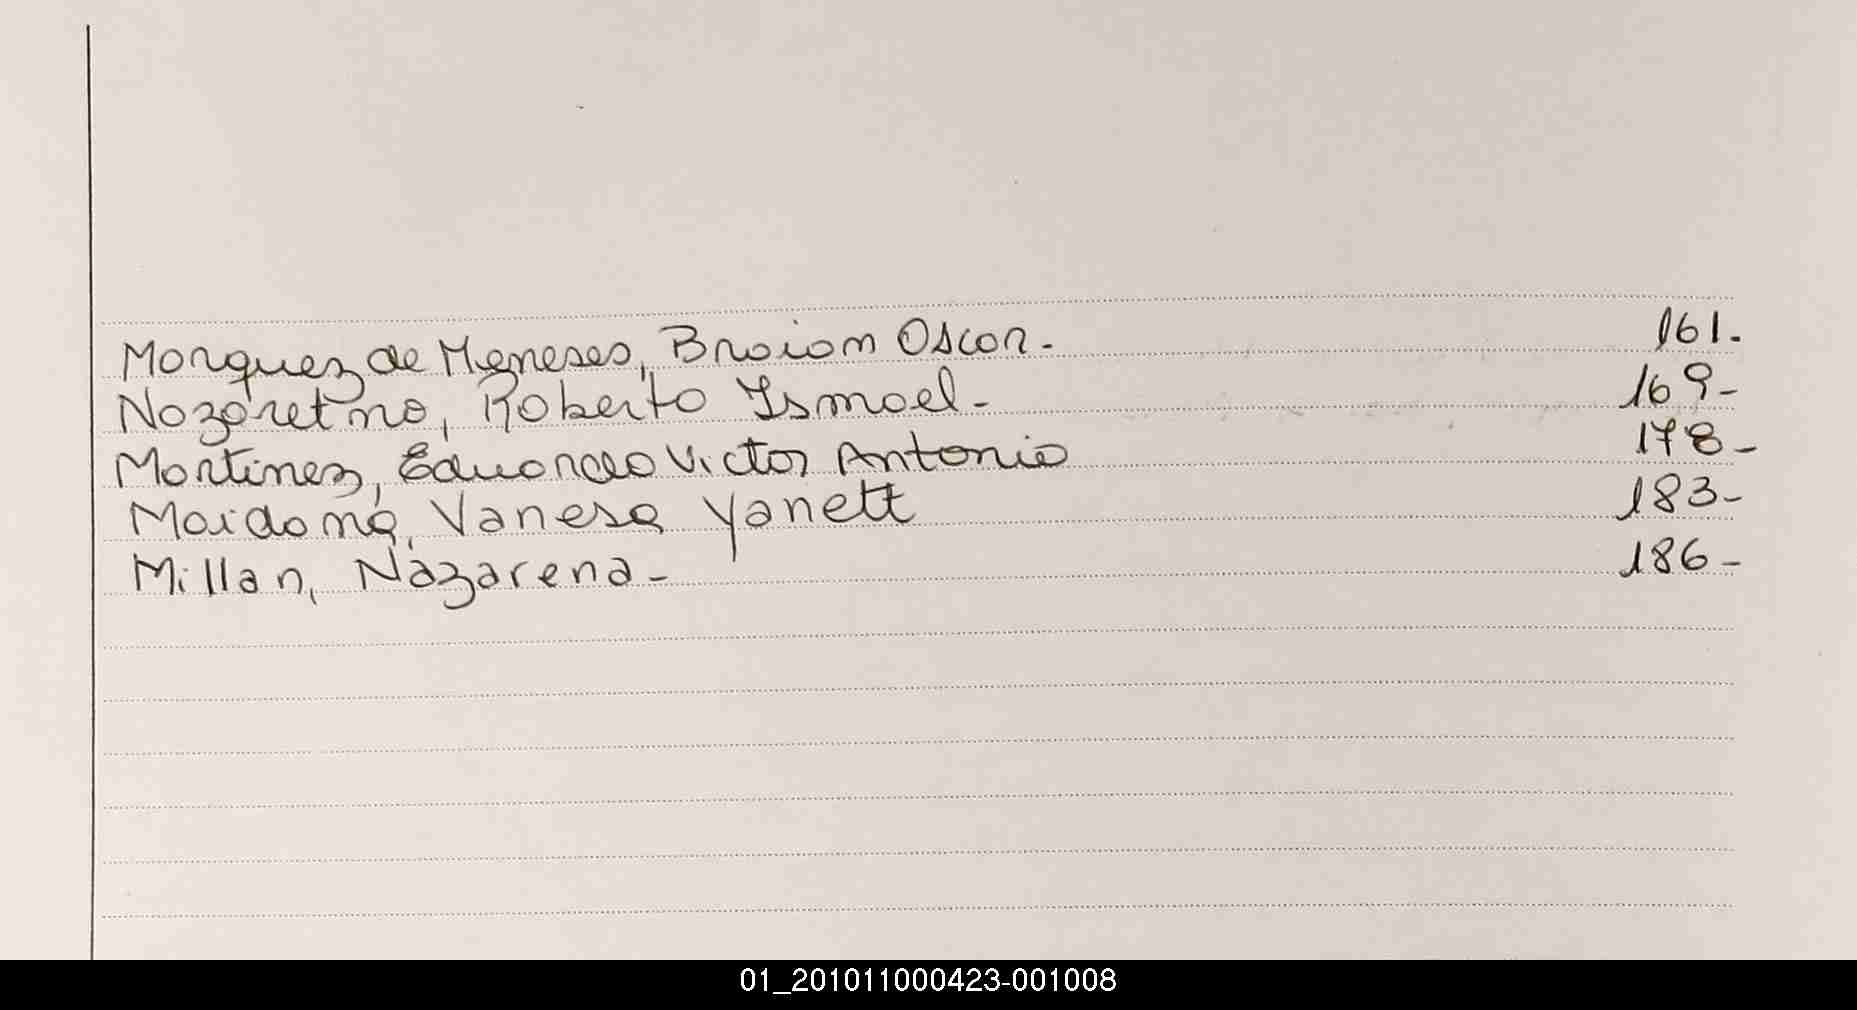 Marquez de Meneses, Braian Oscar. 161.
Nazaretno, Roberto Ismael - 169-
Martinez, Eduardo Victor Antonio 178-
Maidana, Vanesa Yanett 183-
Millan, Nazarena - 186-
01_201011000423-001008